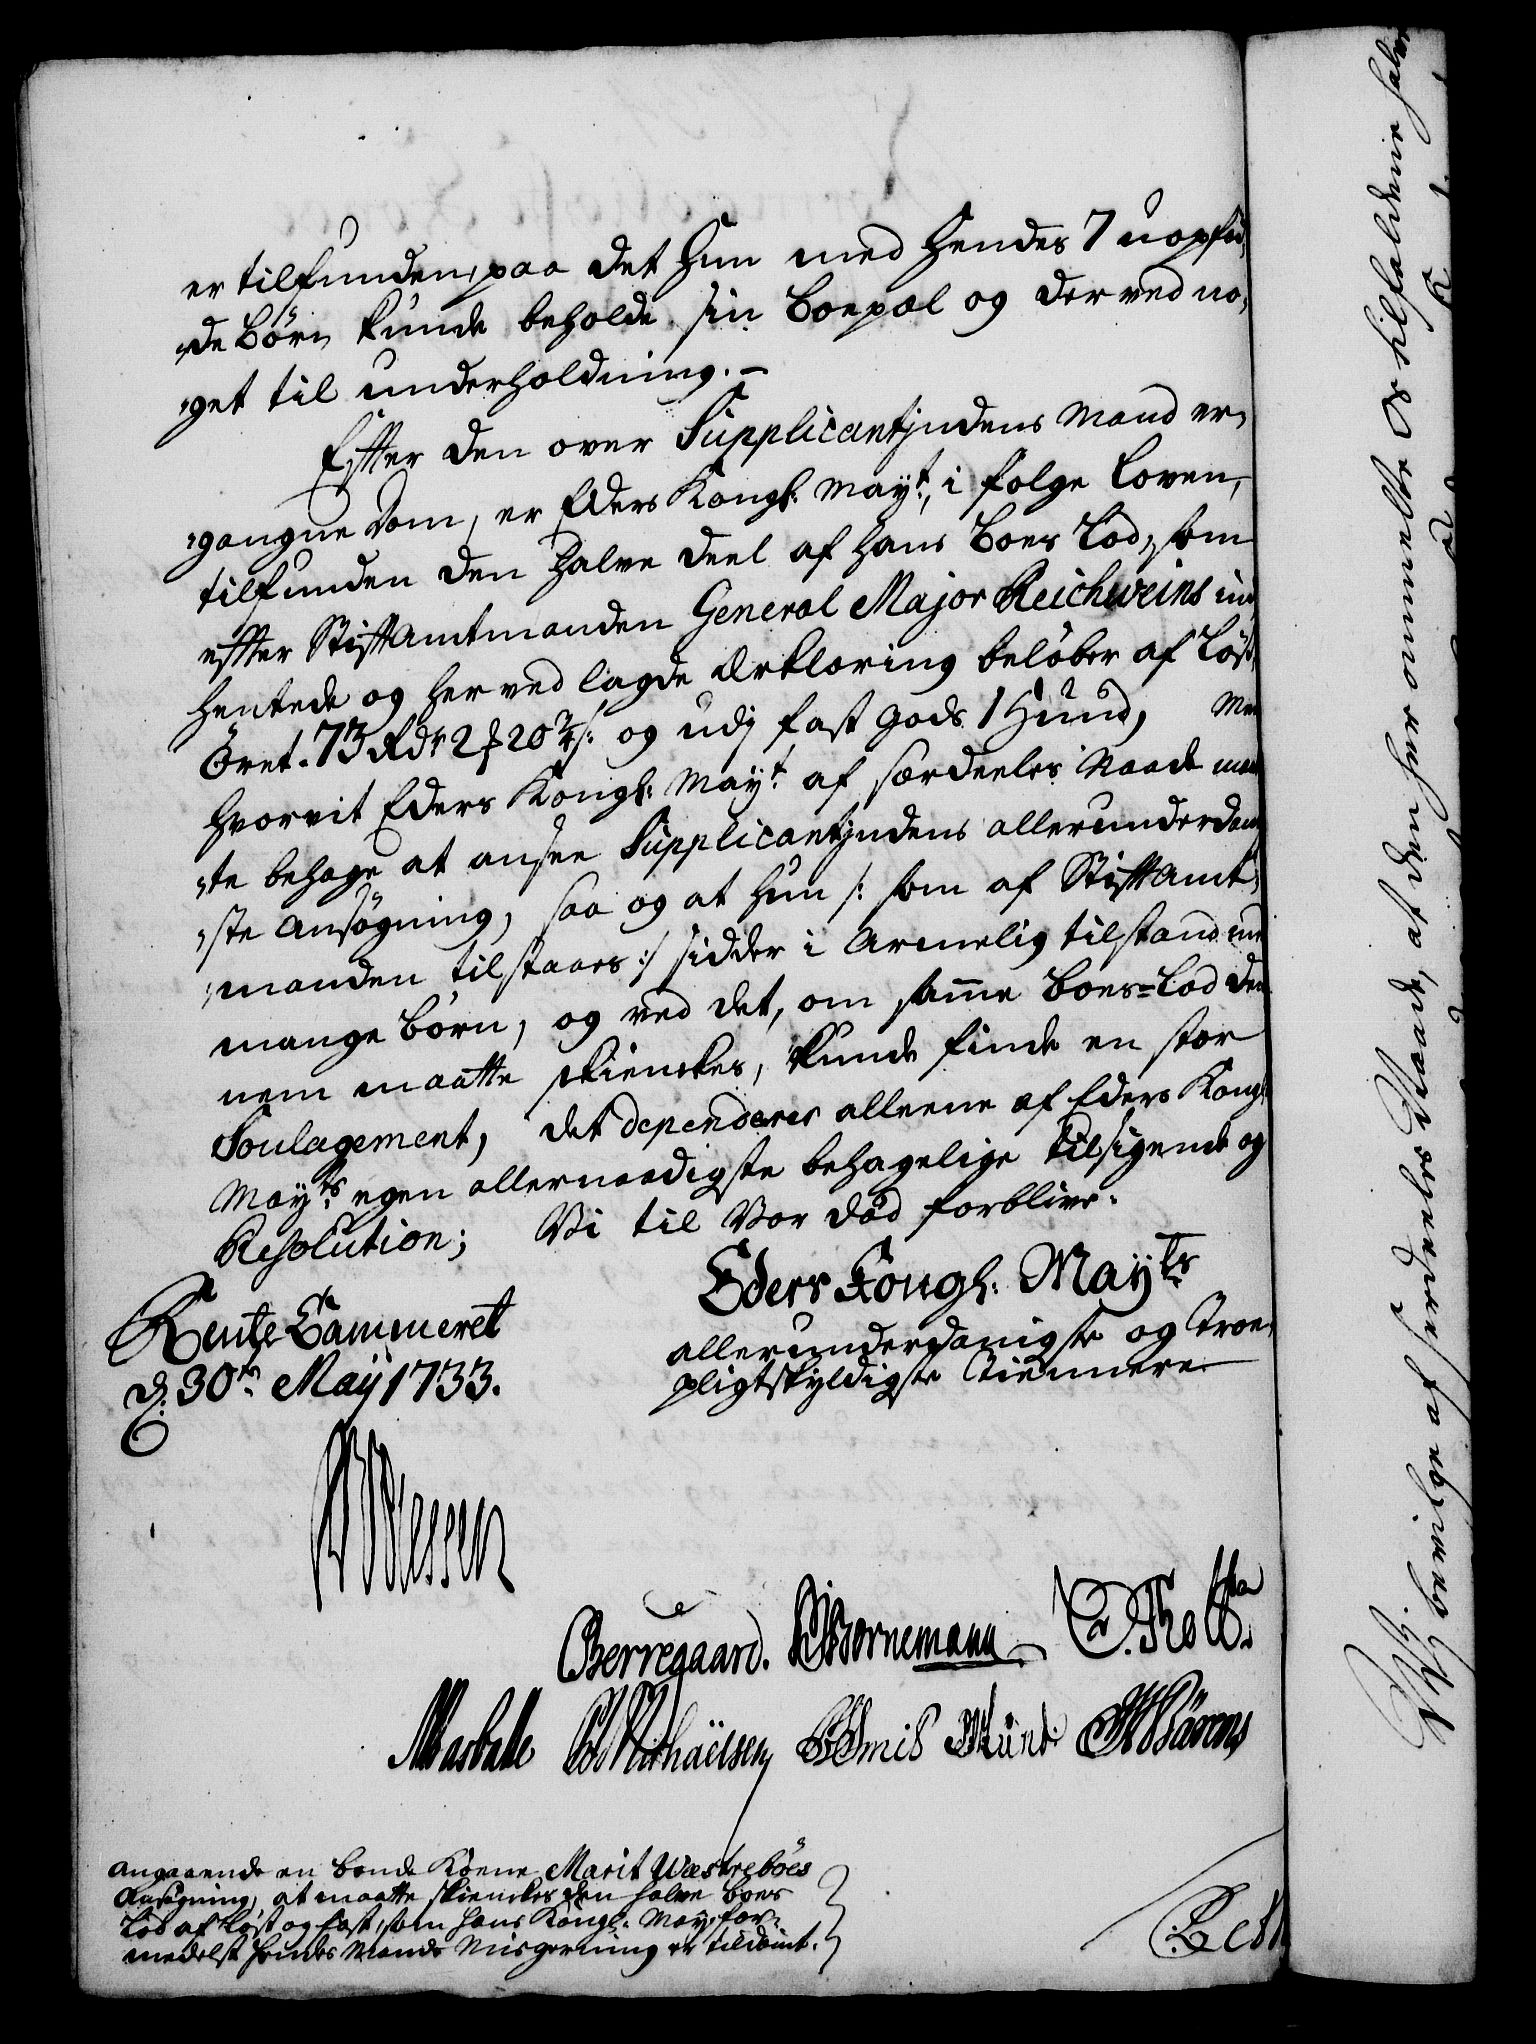 er tilfunden, paa det Hun med hendes 7 uopfød,
,de Børn kunde beholde sin Boepæl og derved no,
,get til underholdning. –
Effter den over Supplicantjndens Mand er,
,gangne Dom, er Eders Kongl: Mayt., i følge Loven,
tilfunden den halve deel af hans Boes Lod, som
effter Stiftamtmanden General Major Reichweins ind
hentede og herved lagde Erklæring beløber af Løs,
Öret. 73 Rdr 2 20 og udj fast gods 1 Hund,
hvorvit Eders Kongl: Mayt. af særdeeles Naade
,te behage at ansee Supplicantjndens allerunderdan
,ste Ansögning, saa og at hun /: som af Stiftamt,
,manden tilstaaes :/ sidder i Armelig tilstand med
mange Börn, og ved det, om samme Boes=Lod den
nem maatte skienckes, kunde finde en stor
Soulagement, det dependerer alleene af Eders Kongl:
Mayts. egen allernaadigste behagelige tilsigende og
Resolution; Vi til Vor död forblive.
Eders Kongl: Mayts
allerunderdanigste og Troe
pligtskyldigste Tiennere
Rente Cammeret
d: 30te May 1733.
Berregaard. Bornemann
Angaaende en Bonde Kone Marit Wæstreböes
Ansögning, at maatte skienckes den halve Boes
Lod af Löst og fast, som Hans Kongl: May. for,
medelst hendes Mands Misgierning er tildömt.
Vj bevilge af særdeeles Naade, at den her ommelte Os tilfaldene halve